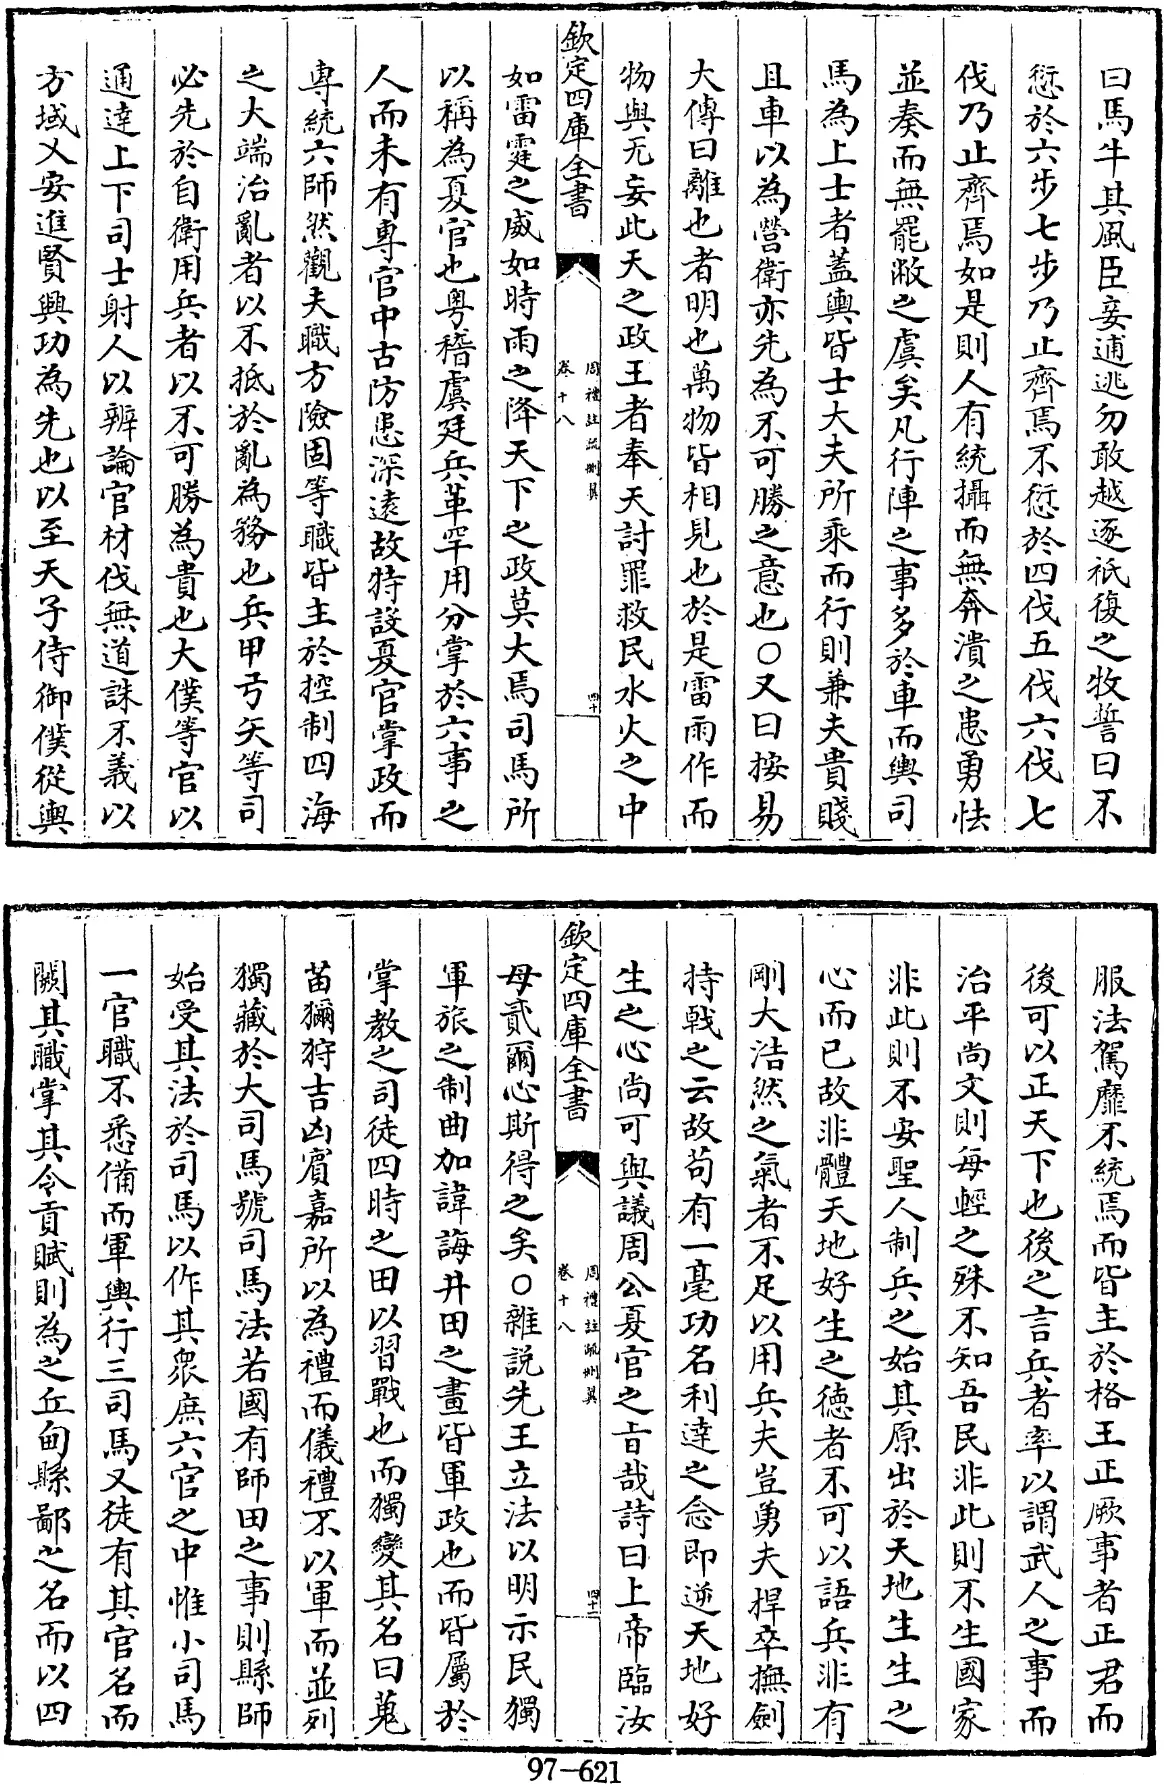 曰馬牛其風臣妾逋逃勿敢越逐祇復之牧誓曰不
愆於六步七步乃止齊焉不愆於四伐五伐六伐七
伐乃止齊焉如是則人有統攝而無奔潰之患勇怯
並奏而無罷敝之虞矣凡行陣之事多於車而輿司
馬為上士者蓋輿皆士大夫所乘而行則兼夫貴賤
且車以為營衛亦先為不可勝之意也○又曰按易
大傳曰離也者明也萬物皆相見也於是雷雨作而
物與无妄此天之政王者奉天討罪救民水火之中
欽定四庫全書
周禮註疏刪翼
卷十八
四十
如雷霆之威如時雨之降天下之政莫大焉司馬所
以稱為夏官也粤稽虞廷兵革罕用分掌於六事之
人而未有專官中古防患深遠故特設夏官掌政而
專統六師然觀夫職方險固等職皆主於控制四海
之大端治亂者以不抵於亂為務也兵甲弓矢等司
必先於自衛用兵者以不可勝為貴也大僕等官以
通達上下司士射人以辨論官材伐無道誅不義以
方域乂安進賢興功為先也以至天子侍御僕從輿
服法駕靡不統焉而皆主於格王正厥事者正君而
後可以正天下也後之言兵者率以謂武人之事而
治平尚文則每輕之殊不知吾民非此則不生國家
非此則不安聖人制兵之始其原出於天地生生之
心而已故非體天地好生之德者不可以語兵非有
剛大浩然之氣者不足以用兵夫豈勇夫捍卒撫劍
持戟之云故苟有一毫功名利達之念即逆天地好
生之心尚可與議周公夏官之旨哉詩曰上帝臨汝
欽定四庫全書
周禮註疏刪翼
卷十八
四十一
母貳爾心斯得之矣○雜說先王立法以明示民獨
軍旅之制曲加諱誨井田之畫皆軍政也而皆屬於
掌教之司徒四時之田以習戰也而獨變其名曰蒐
苗獮狩吉凶賓嘉所以為禮而儀禮不以軍而並列
獨藏於大司馬號司馬法若國有師田之事則縣師
始受其法於司馬以作其眾庶六官之中惟小司馬
一官職不悉備而軍輿行三司馬又徒有其官名而
闕其職掌其令貢賦則為之丘甸縣鄙之名而以四
97-621